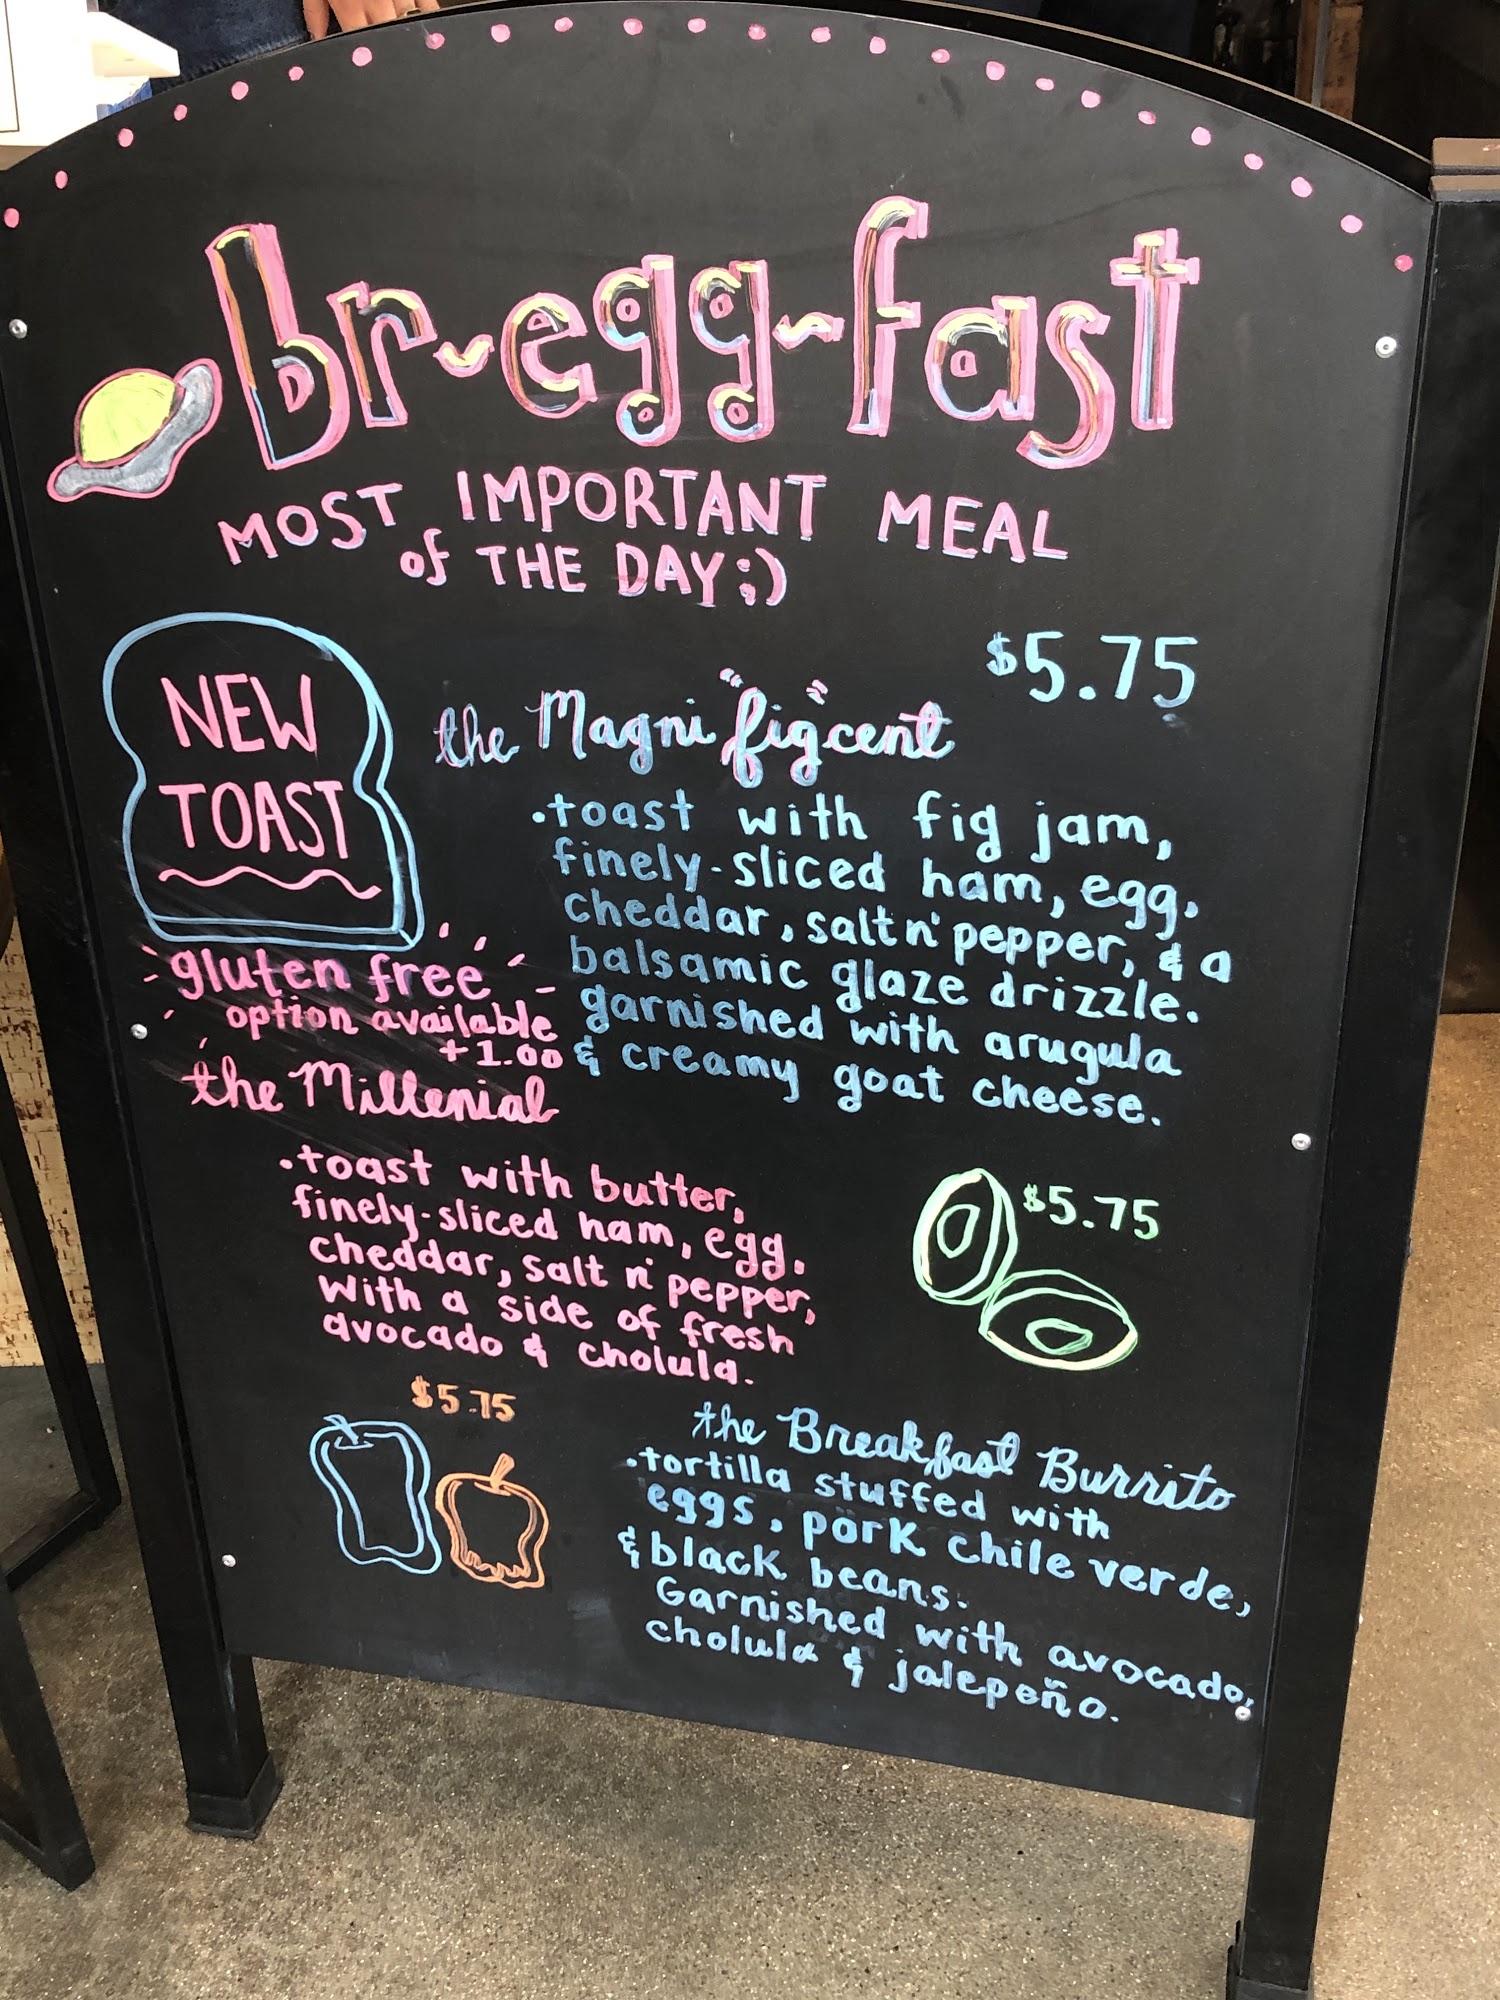 br-egg-fast
MOST IMPORTANT MEAL
of THE DAY ;)
NEW
TOAST
$5.75
the Magni "fig" cent
• toast with fig jam,
finely-sliced ham, egg,
cheddar, salt n' pepper, & a
balsamic glaze drizzle.
garnished with arugula
& creamy goat cheese.
gluten free
option available
+1.00
the Millenial
• toast with butter,
finely-sliced ham, egg,
cheddar, salt n' pepper,
with a side of fresh
avocado & cholula.
$5.75
$5.75
the Breakfast Burrito
• tortilla stuffed with
eggs, pork chile verde,
& black beans.
Garnished with avocado,
cholula & jalepeño.